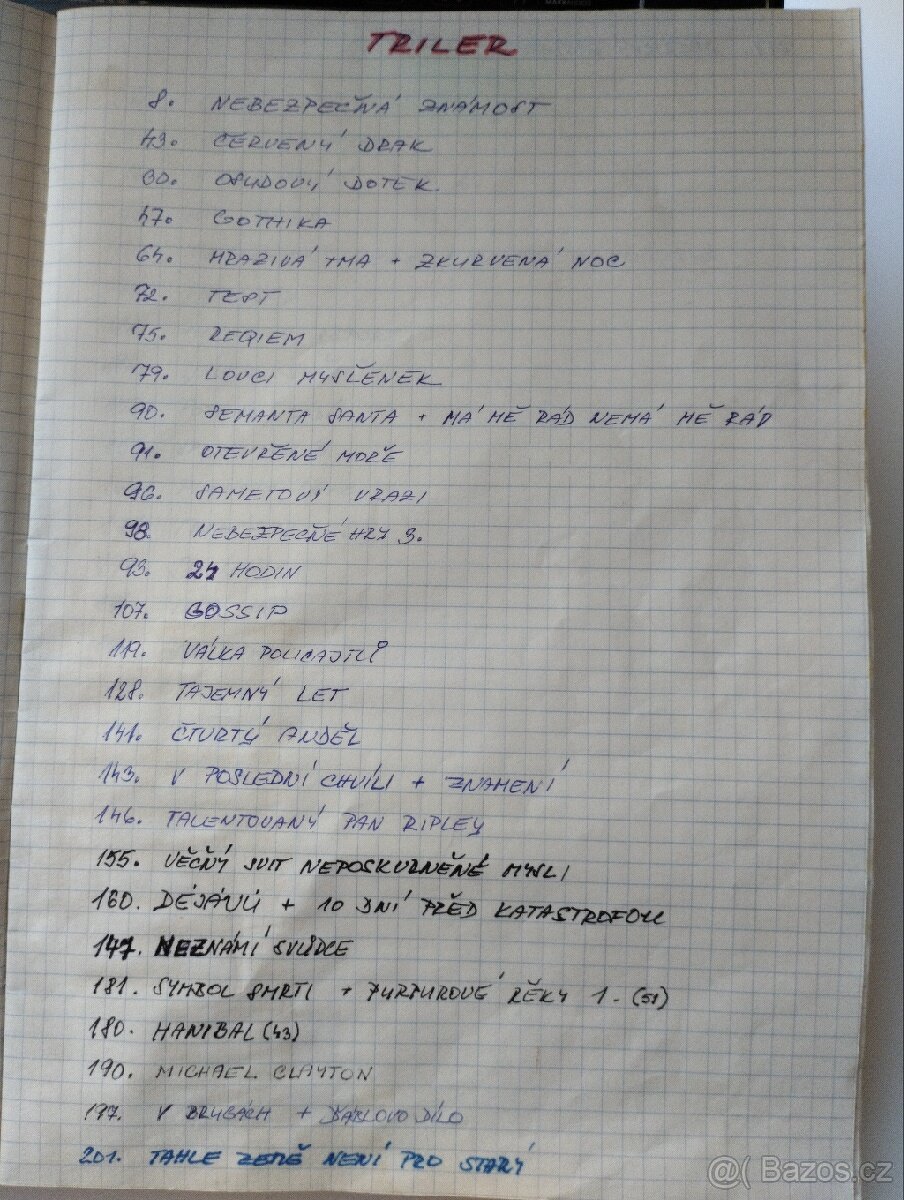 TRILER
8. NEBEZPEČNÁ ZNÁMOST
43. ČERVENÝ DRAK
30. OSUDOVÝ DOTEK.
47. GOTHIKA
64. MRAZIVÁ TMA + ZKURVENÁ NOC
72. TEST
75. REQIEM
79. LOVCI MYŠLĚNEK
90. SEMANTA SANTA + MÁ MĚ RÁD NEMÁ MĚ RÁD
91. OTEVŘENÉ MOŘE
96. SAMETOVÝ VRAZI
98. NEBEZPEČNÉ HRY 3.
93. 24 HODIN
107. GOSSIP
119. VÁLKA POLICAJTŮ
128. TAJEMNÝ LET
141. ČTVRTÝ ANDĚL
143. V POSLEDNÍ CHVÍLI + ZNAMENÍ
146. TALENTOVANÝ PAN RIPLEY
155. VĚČNÝ SVIT NEPOSKVRNĚNÉ MYSLI
160. DÉJÁVÚ + 10 DNÍ PŘED KATASTROFOU
147. NEZNÁMÍ SVŮDCE
181. SYMBOL SMRTI + PURPUROVÉ ŘĚKY 1. (51)
180. HANIBAL (43)
190. MICHAEL CLAYTON
197. V BRUGÁCH + ĎÁBLOVO DÍLO
201. TAHLE ZEMĚ NENÍ PRO STARÝ
@( Bazos.cz